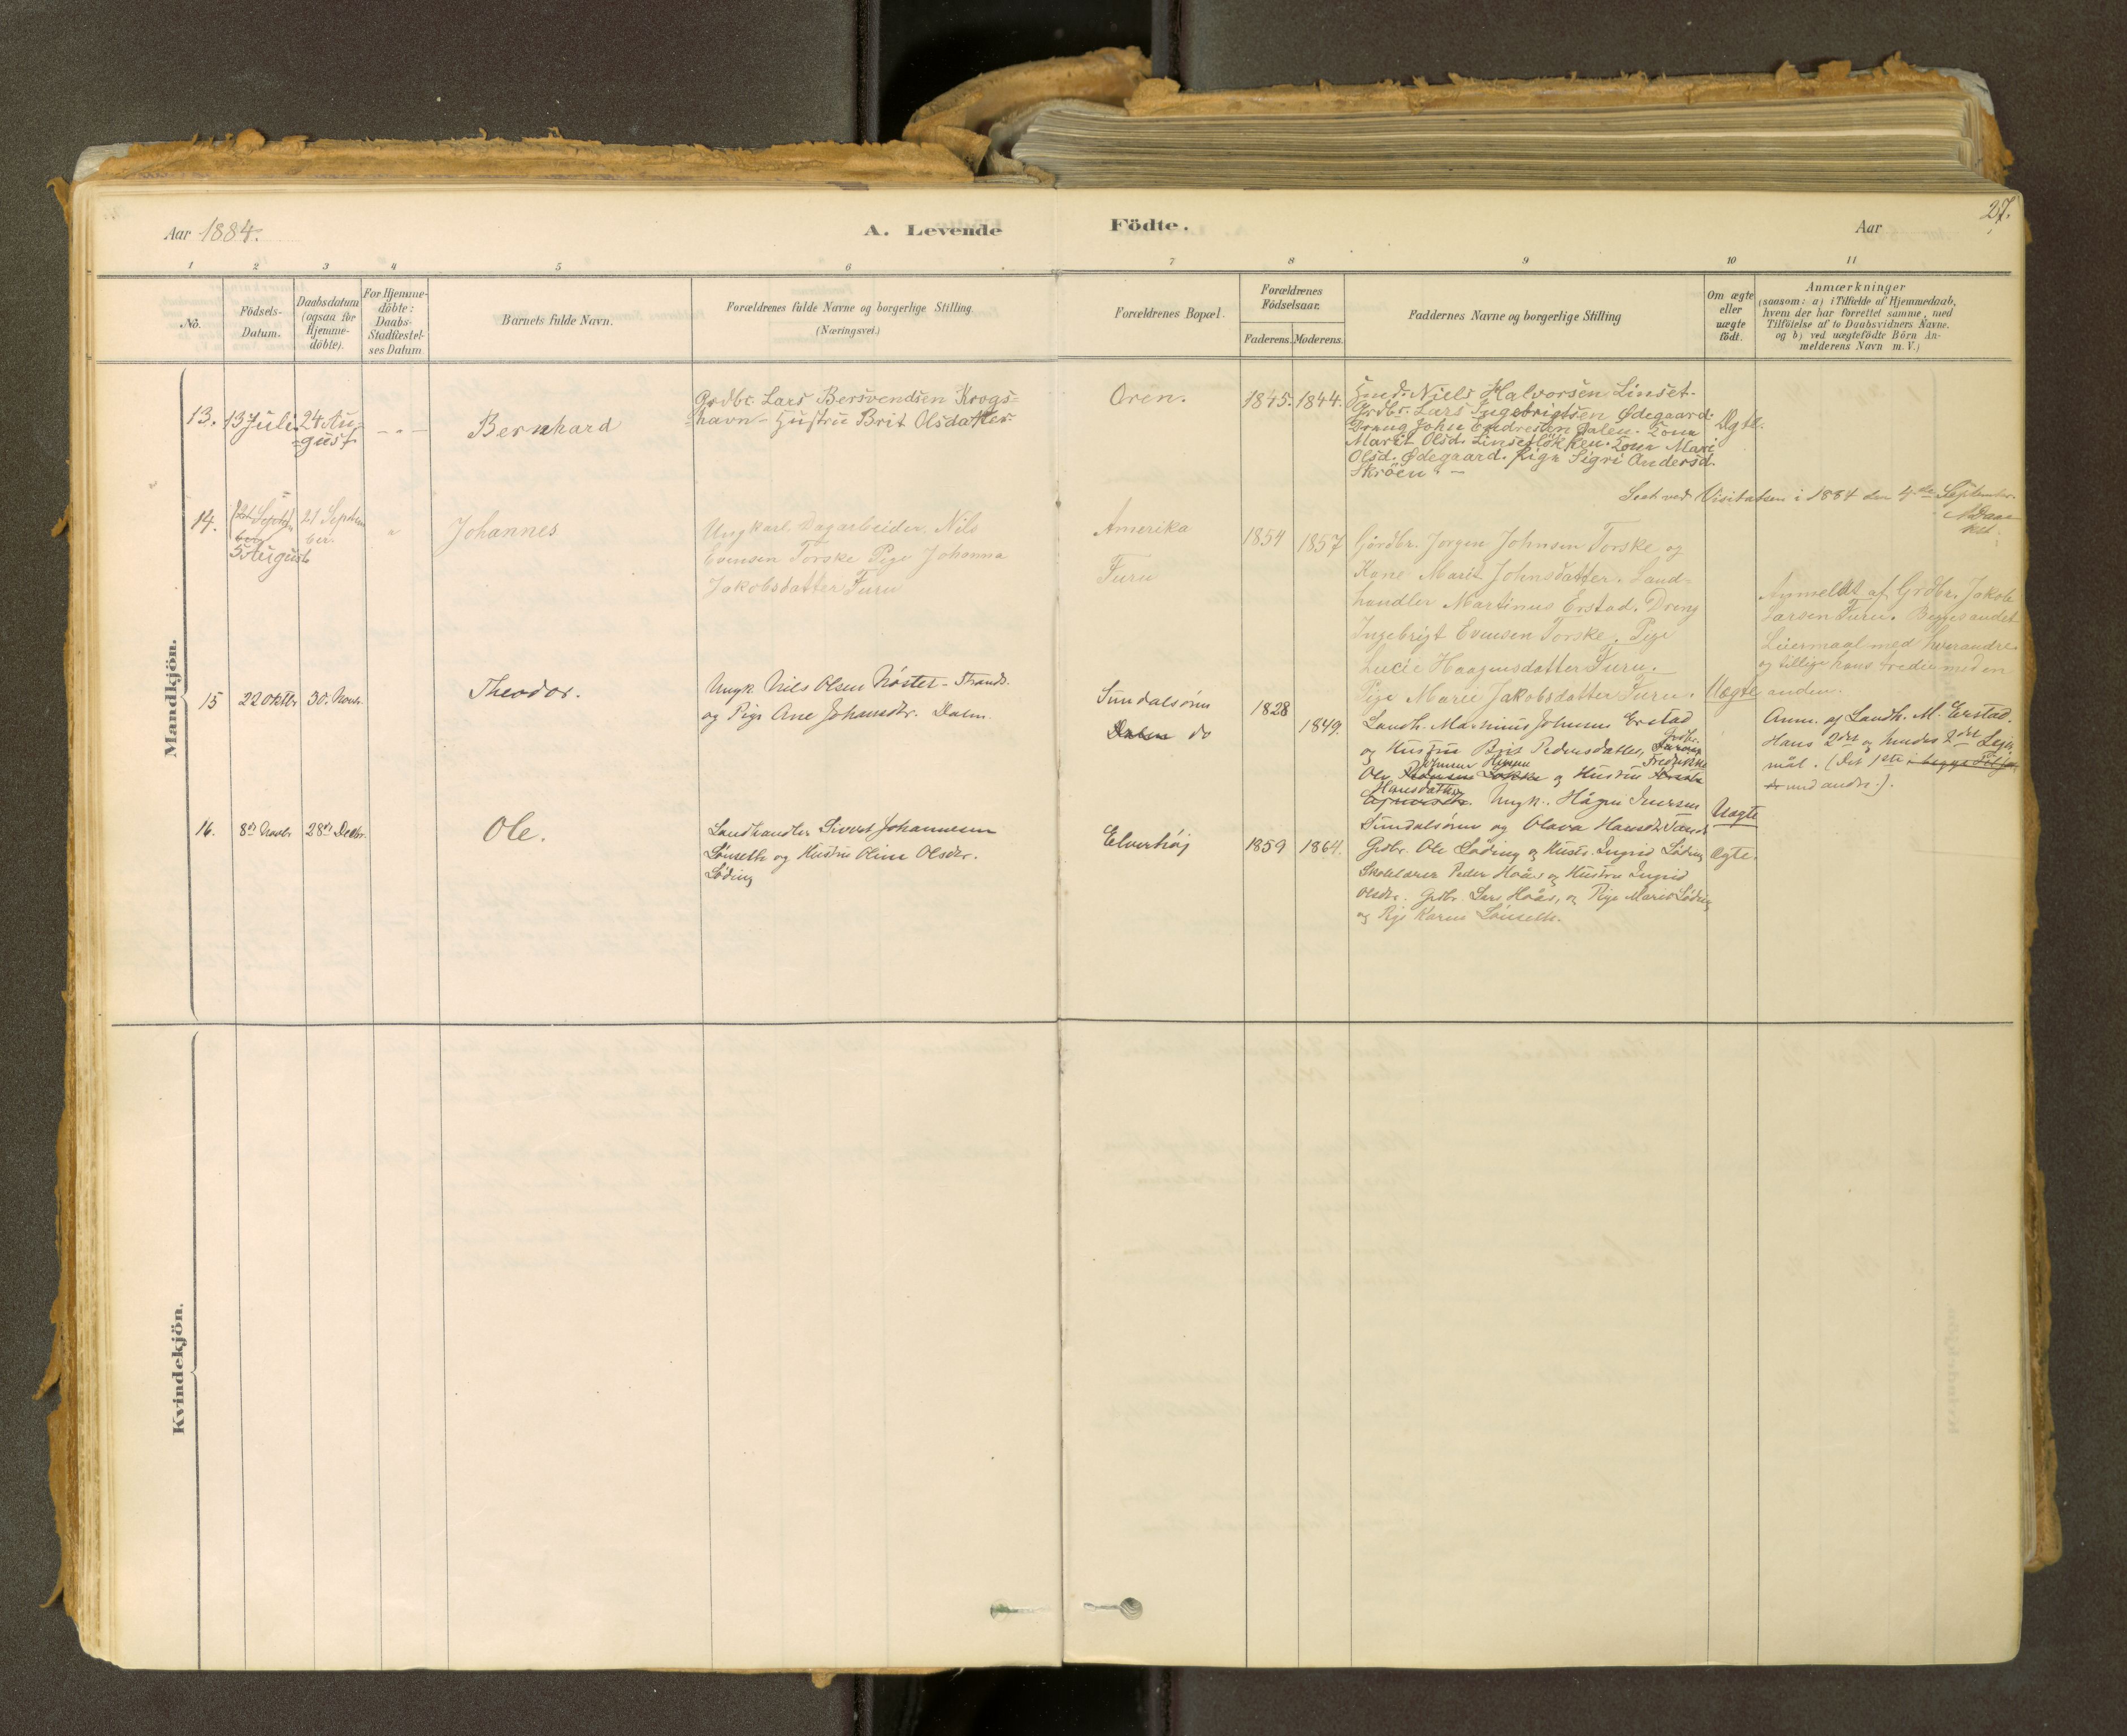 27.
Aar 1884.
A. Levende
Födte.
Aar
1
2
3
4
5
6
7
8
9
10
11
No.
Födsels-
Datum.
Daabsdatum
(ogsaa for
Hjemme-
döbte).
For Hjemme-
döbte:
Daabs-
Stadfæstel-
ses Datum
Barnets fulde Navn.
Forældrenes fulde Navne og borgerlige Stilling
(Næringsvei.)
Forældrenes Bopæl.
Forældrenes
Födselsaar.
Faderens.
Moderens.
Faddernes Navne og borgerlige Stilling
Om ægte
eller
uægte
födt.
Anmærkninger
(saasom: a) i Tilfælde af Hjemmedaab,
hvem der har forrettet samme, med
Tilföielse af to Daabsvidners Navne.
og b) ved uægtefödte Börn An-
melderens Navn m. V.)
Mandkjön.
13.
13 Juli.
24 Au-
gust
- " -
Bernhard
Grdbr. Lars Bersvendsen Krogs=
=havn - Hustru Brit Olsdatter
Oren.
1845.
1844.
Husmd. Niels Halvorsen Linset-
Grdbr. Lars Ingebrigtsen Ødegaard.
Dreng John Endresen Dalen. Kona
Marit Olsd. Linsetlökken. Kona Mari
Olsd. Ødegaard. Pige Sigri Andersd.
Skröen. -
Ægte.
Seet ved Visitatsen i 1884 den 4de September.
14.
5 August
21 Septem
ber.
"
Johannes
Ungkarl Dagarbeider Nils
Evensen Torske Pige Johanna
Jakobsdatter Furu
Amerika
Furu
1854
1857
Gårdbr. Jorgen Johnsen Torske og
Kone Marit Johnsdatter. Land-
handler Martinus Erstad. Dreng
Ingebrigt Evensen Torske. Pige
Lucie Haagensdatter Furu.
Pige Marie Jakobsdatter Furu.
Uægte
Anmeldt af Grdbr. Jakob
Larsen Furu. Begges andet
Leiermaal med hverandre
og tillige hans tredie med en
anden.
15
22 Oktbr
30. Novbr.
Theodor.
Ungk. Nils Olsen Nöster- Strands.
og Pige Ane Johansdtr. Dalen
Sundalsören
do
1828
1849.
Landh. Martinus Johnsen Erstad
og Hustru Brit Pedersdatter, Grdbr.
Ole Johnsen og Hustru Fredrikke
Hansdatter. Ungk. Hågen Iversen
Sundalsören og Olava Hansdt.
Uægte
Anm. af Landh. M. Erstad.
Hans 2det og hendes 2det Leier-
mål. (Det 1ste
med andre.).
16.
8de Novbr.
28de Decbr.
Ole.
Landhandler Sivert Johannesen
Lönseth og Hustru Oline Olsdtr.
Löding
Elverhöj
1859
1864.
Grdbr. Ole Löding og Hustr. Ingrid Löding
Skolelærer Peder Hoås og Hustru Ingrid
Olsdtr. Grdbr. Lars Hoås, og Pige Marit Löding
og Pige Karen Lönseth.
Ægte.
Kvindekjön.